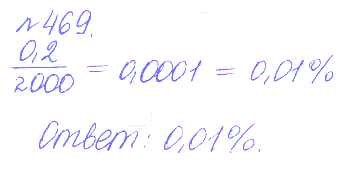 №469.
0,2/2000 = 0,0001 = 0,01%
Ответ: 0,01%.